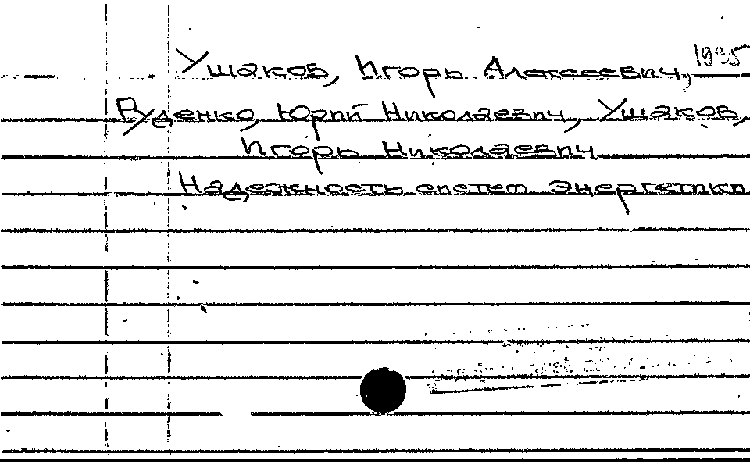 Ушаков, Игорь Алексеевич, 1935
Руденко, Юрий Николаевич, Ушаков,
Игорь Николаевич
Надежность систем энергетики